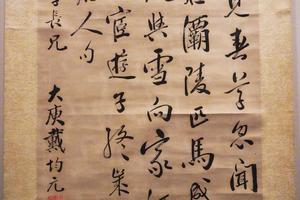 見春草忽聞
灞陵匹馬
與雪向家
宦遊子終
人句
長兄
大庾戴均元